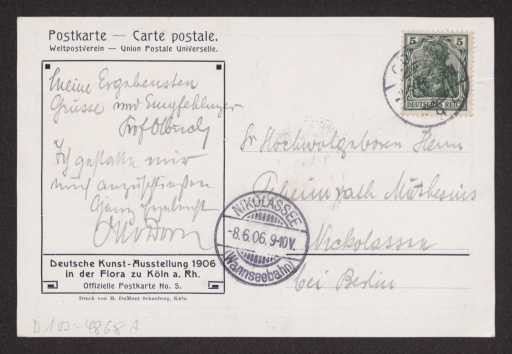 Postkarte — Carte postale.
Weltpostverein — Union Postale Universelle.
Meine Ergebensten
Grüsse und Empfehlungen
Prof Olbrich
Ich gestatte mir
mich anzuschließen
Ganz ergebenst
Deutsche Kunst-Ausstellung 1906
in der Flora zu Köln a. Rh.
Offizielle Postkarte No. 5.
Druck von M. DuMont Schauberg, Köln.
5 5
DEUTSCHES REICH
Sr Hochwolgeboren Herrn
Geheimrath Muthesius
Nickolassee
bei Berlin
NIKOLASSEE
-8.6.06. 9-10V.
(Wannseebahn)
D 102-4868 A